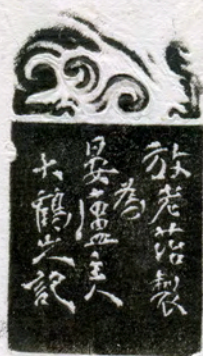 放老葊製
為
晏廬主人
大鶴山記